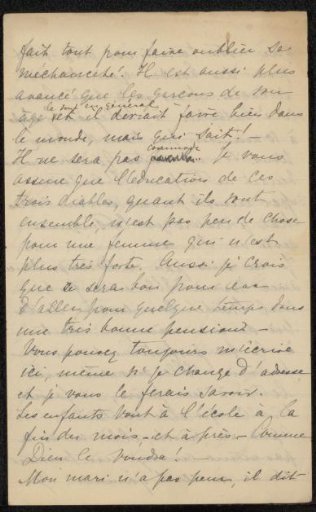 fait tout pour faire oublier sa
méchanceté. Il est aussi plus
avancé que les garcons de son
age et il devrait faire bien dans
le monde, mais qui sait! —
Il ne sera pas commode
Je vous
assure que l'éducation de ces
trois diables, quant ils sont
ensemble, n'est pas peu de chose
pour une femme qui n'est
plus très forte. Aussi je crois
que ce sera bon pour eux
d'aller pour quelque temps dans
une très bonne pension. —
Vous pouvez toujours m'écrire
ici, même si je change d'adresse
et je vous le ferais savoir.
Les enfants vont à l'école a la
fin du mois — et à près — comme
Dieu le voudra!
Mon mari n'a pas peur, il dit